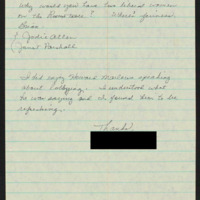 Why would you have two liberal women
on the News Hour? Where's fairness
there.
Jodie Allen
Janet Marshall
I did enjoy Howard Barlow speaking
about lobbying. We understood what
he was saying and we found him to be
refreshing.
Thanks!